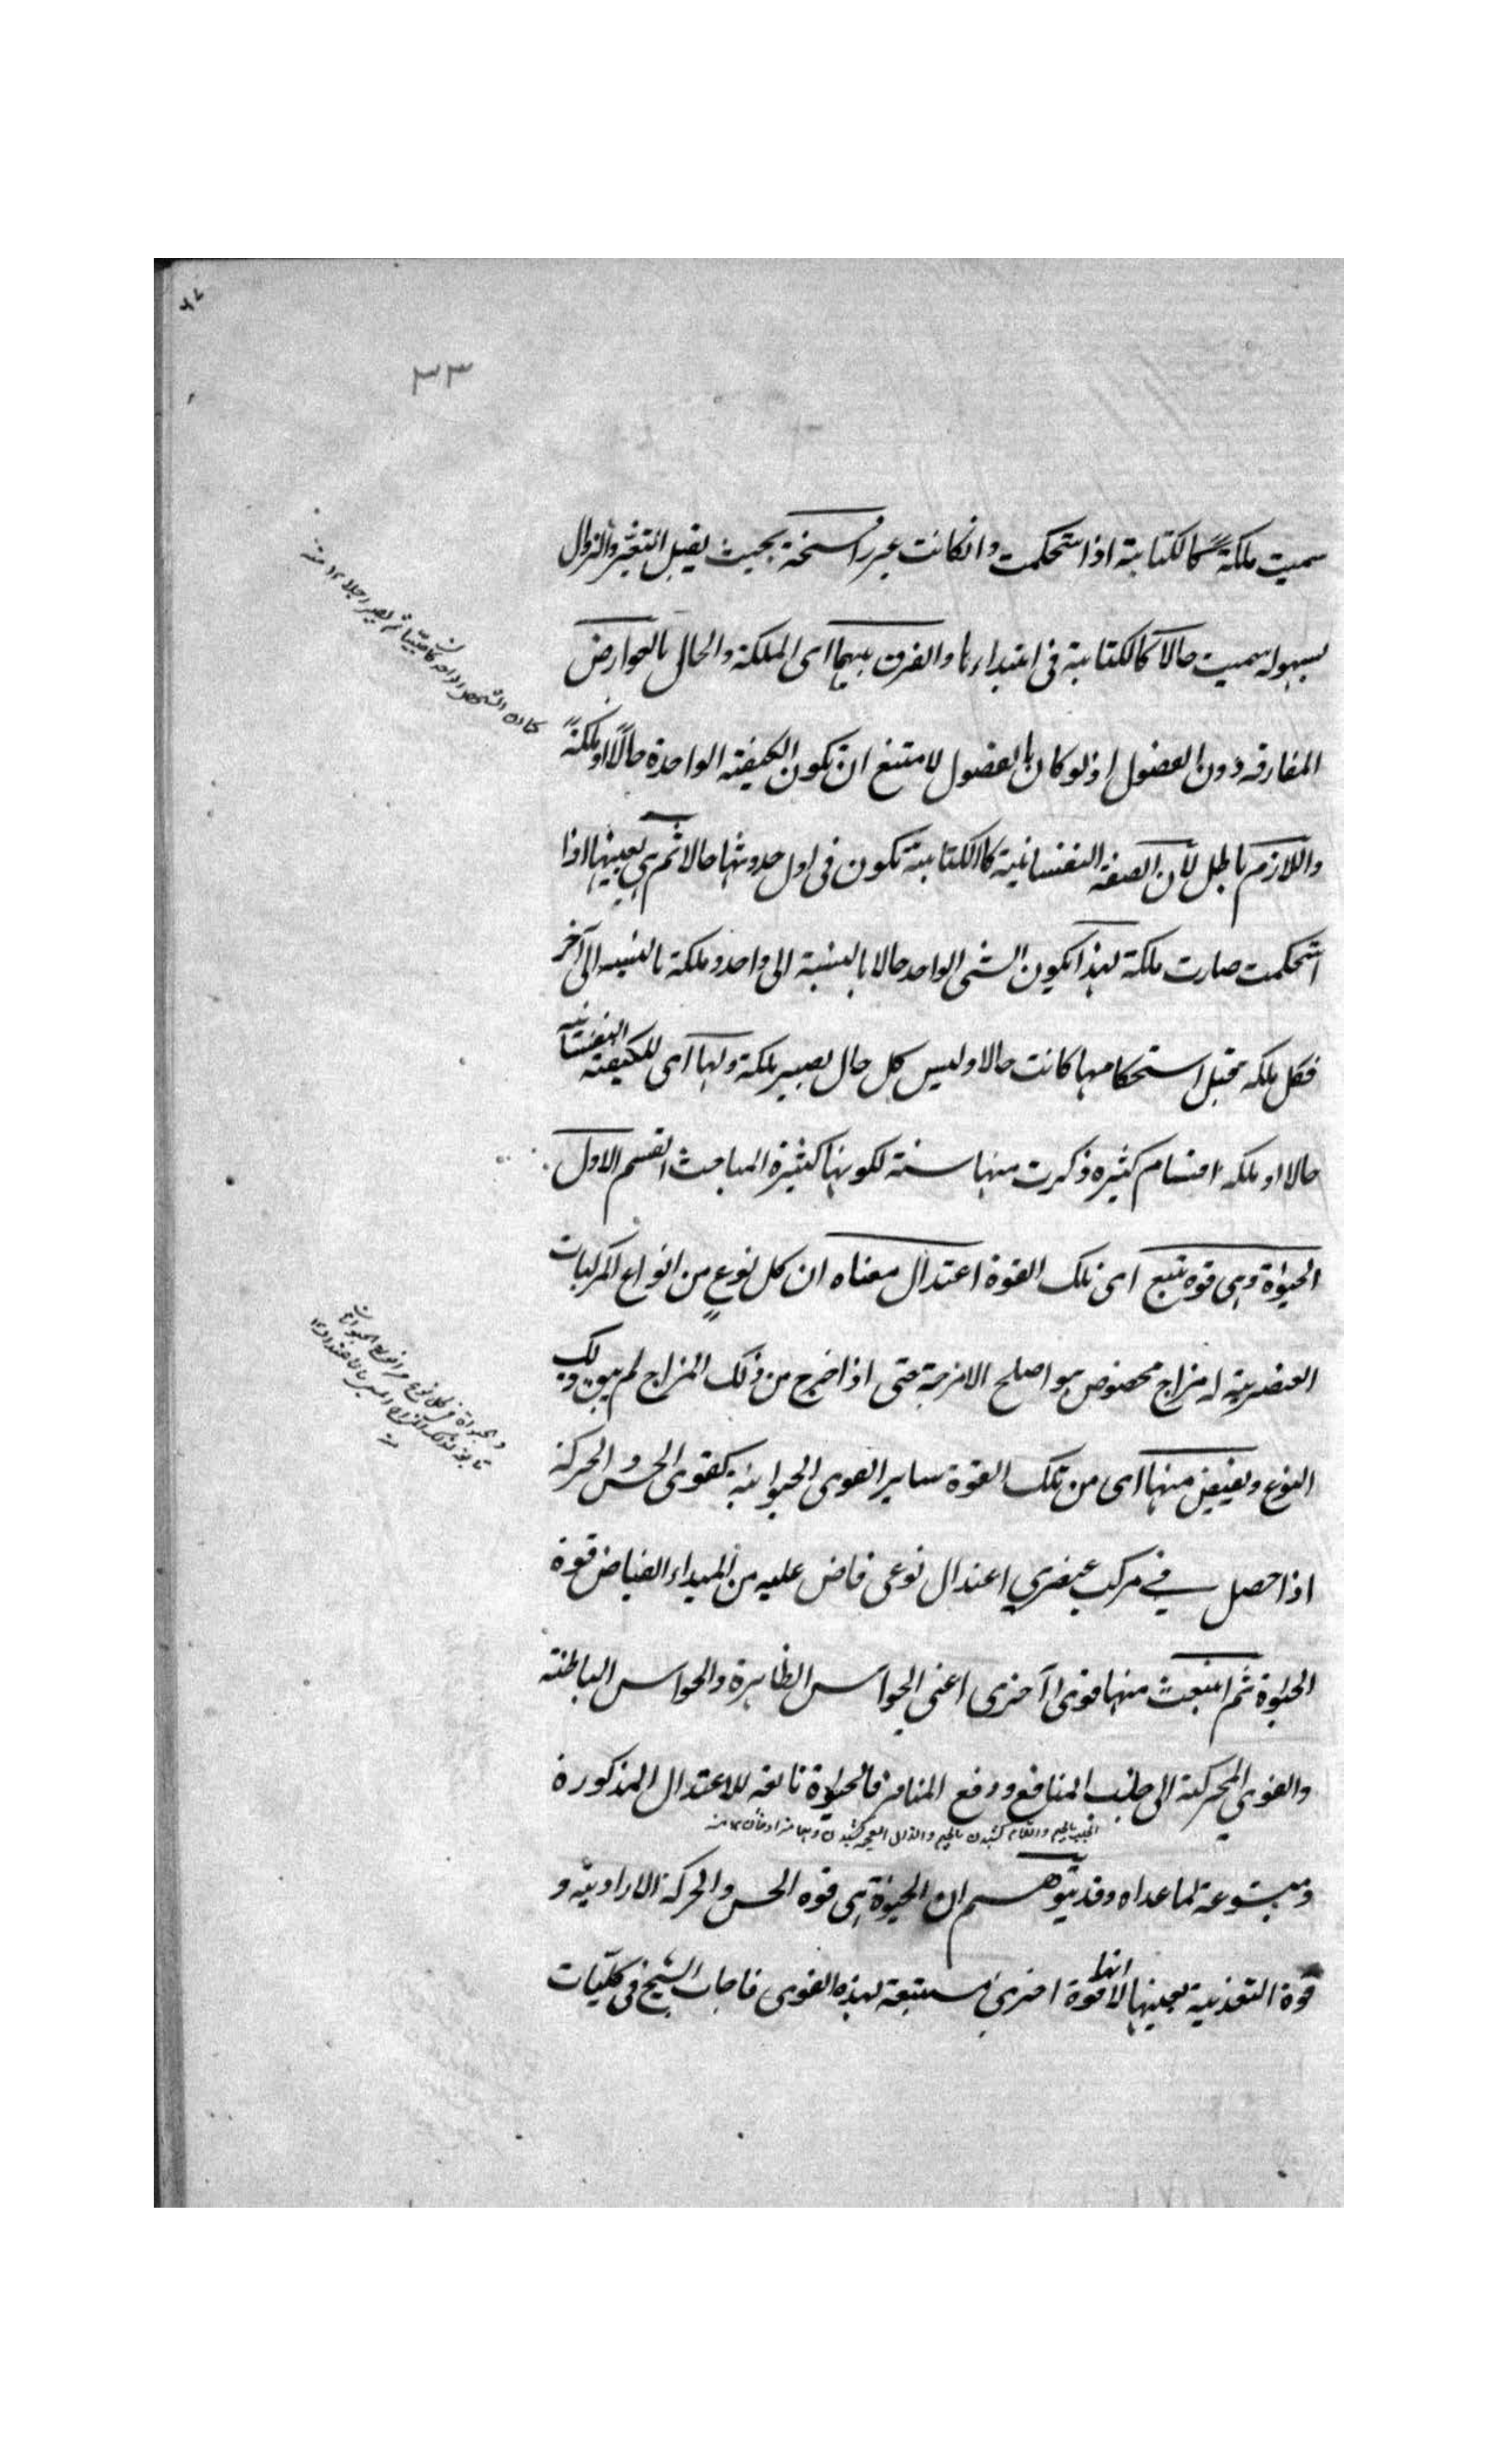 ٣٣
سميت ملكة كالكتابة اذا استحكمت وانكانت غير راسخة بحيث يقبل التغير والزوال
بسهوله سميت حالا كالكتابة فى ابتداءها والفرق بينهما اى الملكة والحال بالعوارض
المفارقه دون الفصول اذ لو كان بالفصول لامتنع ان تكون الكيفيته الواحدة حالا او ملكة
واللازم باطل لان الصفة النفسانية كالكتابة تكون فى اول حدوثها حالا ثم هى بعينها اذا
استحكمت صارت ملكة لهذا يكون الشى الواحد حالا بالنسبة الى واحد وملكة بالنسبه الى آخر
فكل ملكه قبل استحكامها كانت حالا وليس كل حال يصير ملكة ولها اى للكيفية النفسانيه
حالا او ملكه اقسام كثيره ذكرت منها ستة لكونها كثيرة المباحث القسم الاول
الحيوة وهى قوة تتبع اى تلك القوة اعتدال معناه ان كل نوع من انواع المركبات
العنصرية له مزاج مخصوص هو اصلح الامزجة حتى اذا خرج من ذلك المزاج لم يبق ذلك
النوع ويفيض منها اى من تلك القوة ساير القوى الحيوانية كقوى الحس والحركة
اذا حصل فى مركب عنصري اعتدال نوعى فاض عليه من المبداء الفياض قوة
الحيوة ثم انبعث منها قوى آخرى اعنى الحواس الظاهرة والحواس الباطنته
والقوى المحركة الى جلب المنافع ودفع المنافر فالحيوة تابعة للاعتدال المذكورة
ومتبوعة لما عداه وقد يتوهم ان الحيوة هى قوه الحس والحركة الاراديته و
قوة التغذية بعينها لا انها قوة اخرى مستتبعة لهذه القوى فاجاب الشيخ فى كليات
كما ان الشخص الواحد كان صبيا ثم يصير رجلا ١٢ منه